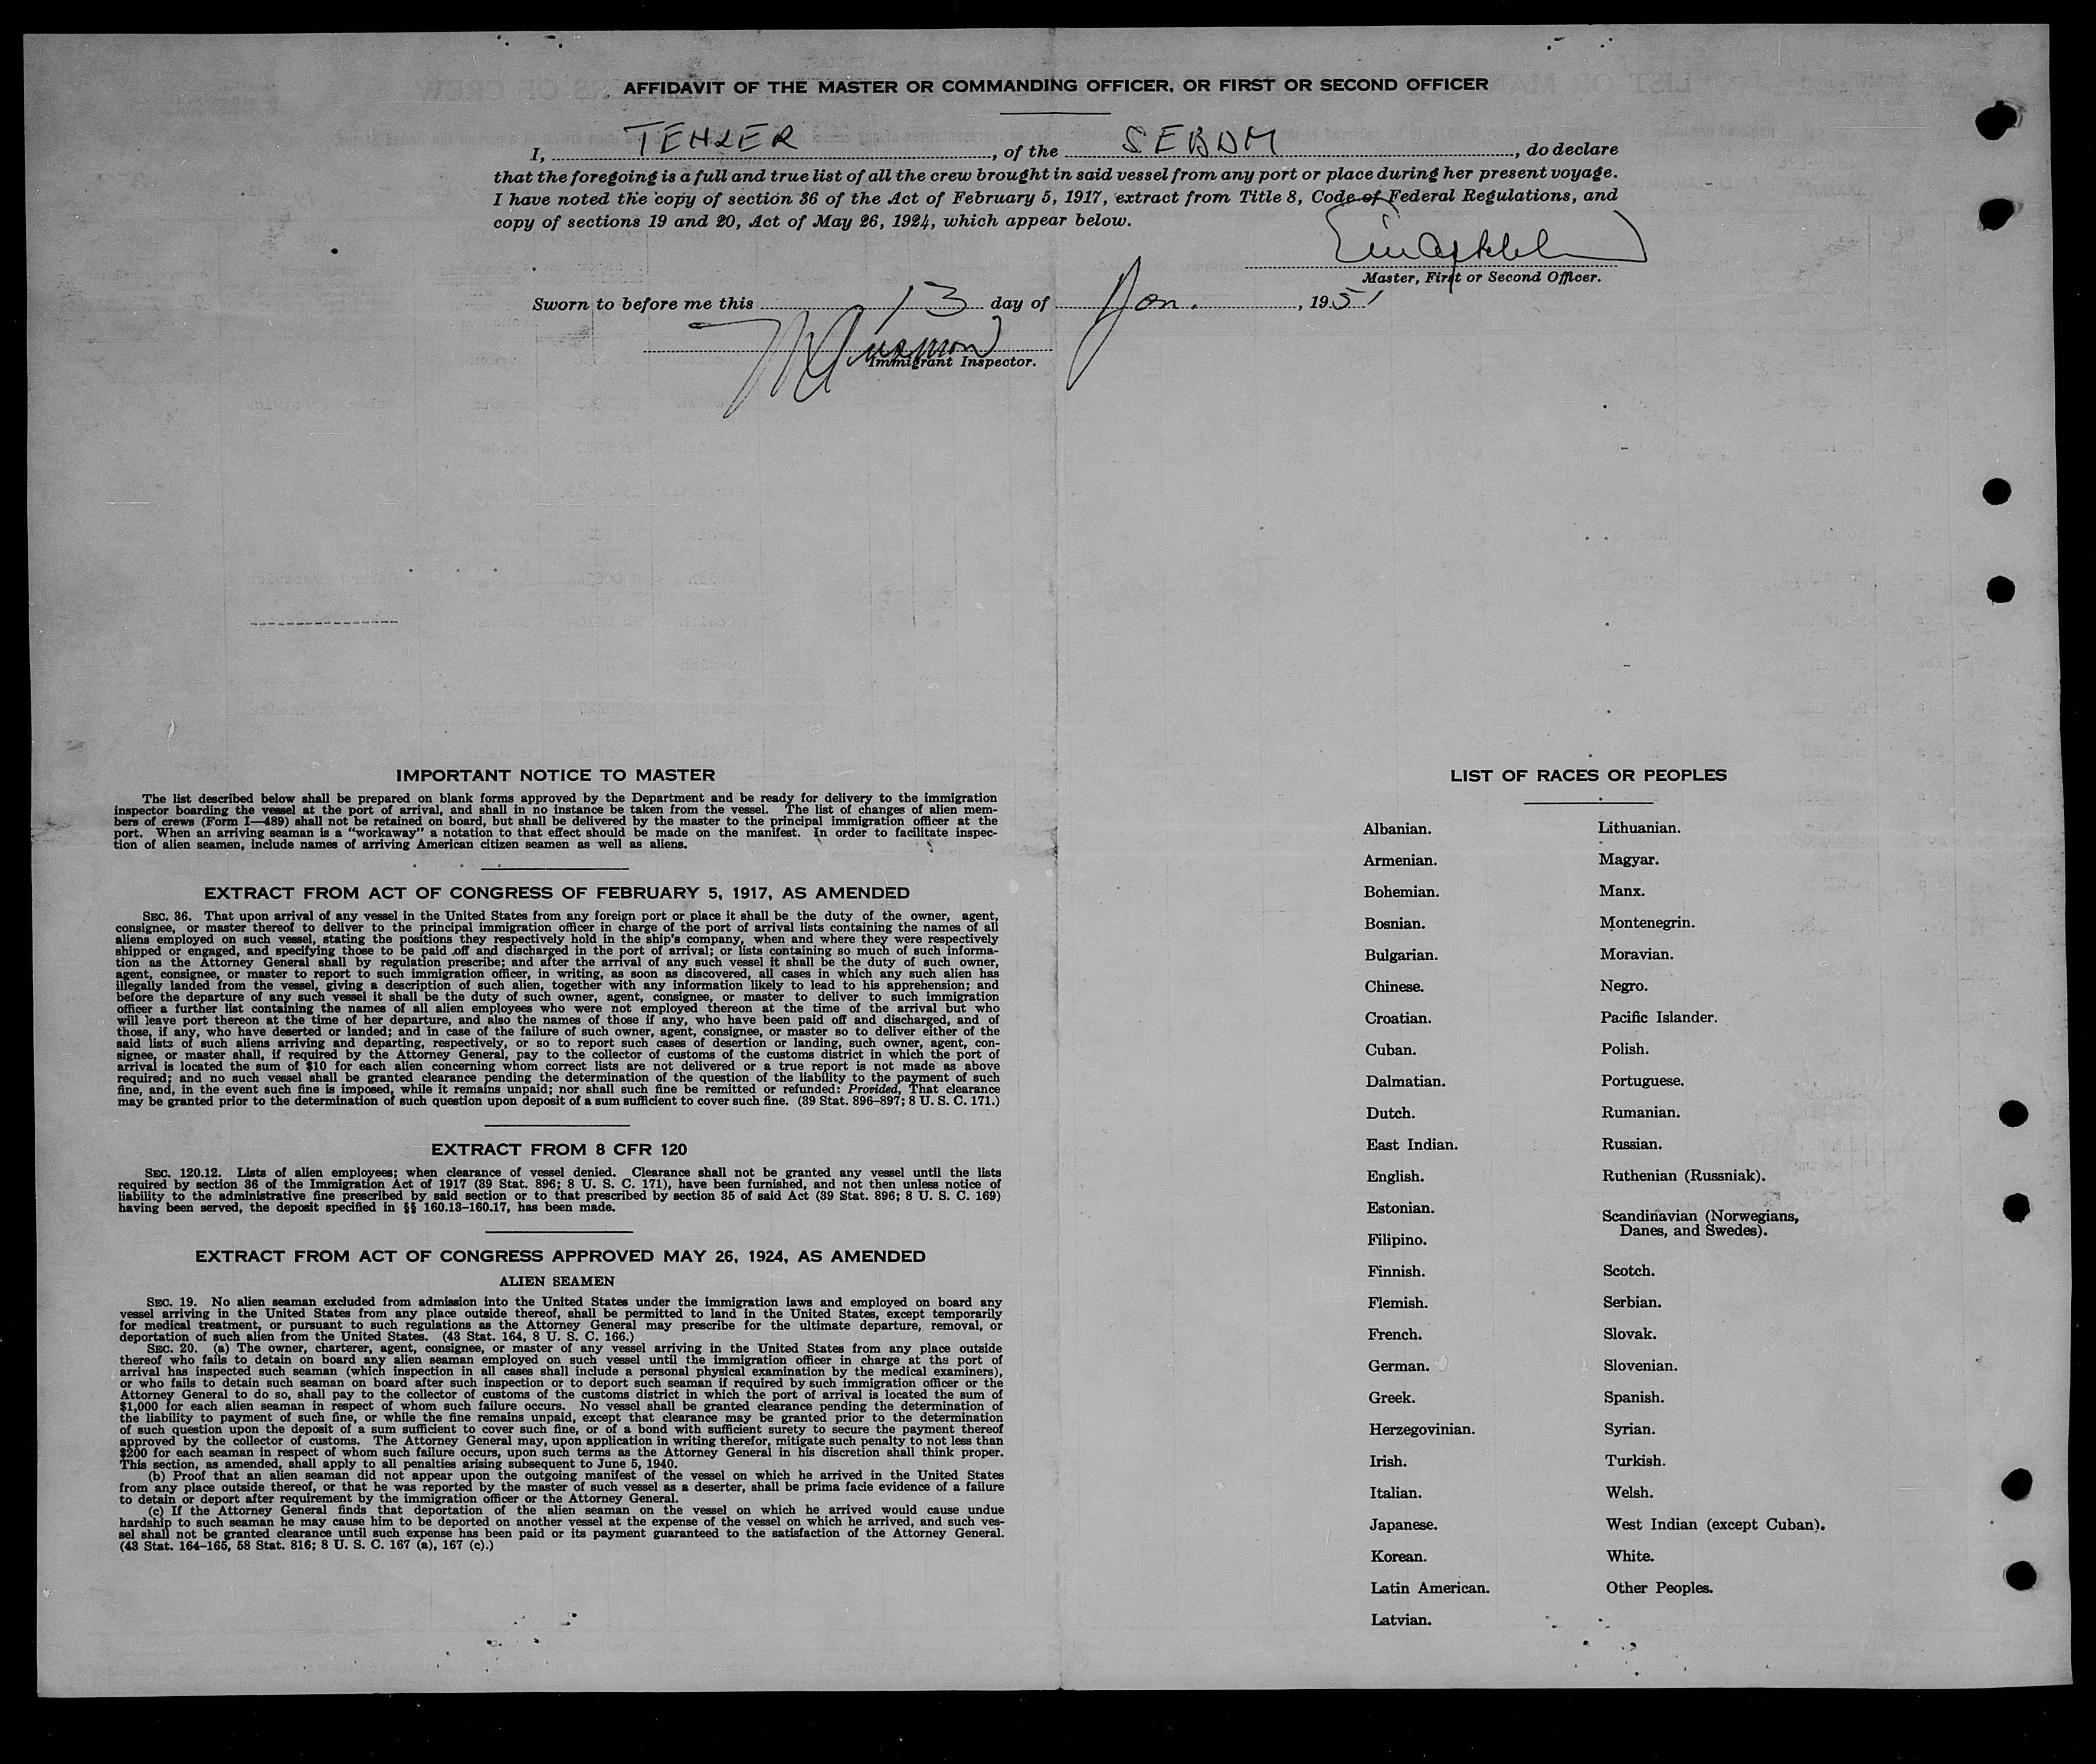 AFFIDAVIT OF THE MASTER OR COMMANDING OFFICER, OR FIRST OR SECOND OFFICER
I, TEHLER, of the SEBDM, do declare
that the foregoing is a full and true list of all the crew brought in said vessel from any port or place during her present voyage.
I have noted the copy of section 36 of the Act of February 5, 1917, extract from Title 8, Code of Federal Regulations, and
copy of sections 19 and 20, Act of May 26, 1924, which appear below.
Master, First or Second Officer.
Sworn to before me this 13 day of Jan., 1951
Immigrant Inspector.
IMPORTANT NOTICE TO MASTER
The list described below shall be prepared on blank forms approved by the Department and be ready for delivery to the immigration
inspector boarding the vessel at the port of arrival, and shall in no instance be taken from the vessel. The list of changes of alien mem-
bers of crews (Form I—489) shall not be retained on board, but shall be delivered by the master to the principal immigration officer at the
port. When an arriving seaman is a “workaway” a notation to that effect should be made on the manifest. In order to facilitate inspec-
tion of alien seamen, include names of arriving American citizen seamen as well as aliens.
EXTRACT FROM ACT OF CONGRESS OF FEBRUARY 5, 1917, AS AMENDED
SEC. 36. That upon arrival of any vessel in the United States from any foreign port or place it shall be the duty of the owner, agent,
consignee, or master thereof to deliver to the principal immigration officer in charge of the port of arrival lists containing the names of all
aliens employed on such vessel, stating the positions they respectively hold in the ship's company, when and where they were respectively
shipped or engaged, and specifying those to be paid off and discharged in the port of arrival; or lists containing so much of such informa-
tion as the Attorney General shall by regulation prescribe; and after the arrival of any such vessel it shall be the duty of such owner,
agent, consignee, or master to report to such immigration officer, in writing, as soon as discovered, all cases in which any such alien has
illegally landed from the vessel, giving a description of such alien, together with any information likely to lead to his apprehension; and
before the departure of any such vessel it shall be the duty of such owner, agent, consignee, or master to deliver to such immigration
officer a further list containing the names of all alien employees who were not employed thereon at the time of the arrival but who
will leave port thereon at the time of her departure, and also the names of those if any, who have been paid off and discharged, and of
those, if any, who have deserted or landed; and in case of the failure of such owner, agent, consignee, or master so to deliver either of the
said lists of such aliens arriving and departing, respectively, or so to report such cases of desertion or landing, such owner, agent, con-
signee, or master shall, if required by the Attorney General, pay to the collector of customs of the customs district in which the port of
arrival is located the sum of $10 for each alien concerning whom correct lists are not delivered or a true report is not made as above
required; and no such vessel shall be granted clearance pending the determination of the question of the liability to the payment of such
fine, and, in the event such fine is imposed, while it remains unpaid; nor shall such fine be remitted or refunded: Provided, That clearance
may be granted prior to the determination of such question upon deposit of a sum sufficient to cover such fine. (39 Stat. 896–897; 8 U. S. C. 171.)
EXTRACT FROM 8 CFR 120
SEC. 120.12. Lists of alien employees; when clearance of vessel denied. Clearance shall not be granted any vessel until the lists
required by section 36 of the Immigration Act of 1917 (39 Stat. 896; 8 U. S. C. 171), have been furnished, and not then unless notice of
liability to the administrative fine prescribed by said section or to that prescribed by section 35 of said Act (39 Stat. 896; 8 U. S. C. 169)
having been served, the deposit specified in §§ 160.13–160.17, has been made.
EXTRACT FROM ACT OF CONGRESS APPROVED MAY 26, 1924, AS AMENDED
ALIEN SEAMEN
SEC. 19. No alien seaman excluded from admission into the United States under the immigration laws and employed on board any
vessel arriving in the United States from any place outside thereof, shall be permitted to land in the United States, except temporarily
for medical treatment, or pursuant to such regulations as the Attorney General may prescribe for the ultimate departure, removal, or
deportation of such alien from the United States. (43 Stat. 164, 8 U. S. C. 166.)
SEC. 20. (a) The owner, charterer, agent, consignee, or master of any vessel arriving in the United States from any place outside
thereof who fails to detain on board any alien seaman employed on such vessel until the immigration officer in charge at the port of
arrival has inspected such seaman (which inspection in all cases shall include a personal physical examination by the medical examiners),
or who fails to detain such seaman on board after such inspection or to deport such seaman if required by such immigration officer or the
Attorney General to do so, shall pay to the collector of customs of the customs district in which the port of arrival is located the sum of
$1,000 for each alien seaman in respect of whom such failure occurs. No vessel shall be granted clearance pending the determination of
the liability to payment of such fine, or while the fine remains unpaid, except that clearance may be granted prior to the determination
of such question upon the deposit of a sum sufficient to cover such fine, or of a bond with sufficient surety to secure the payment thereof
approved by the collector of customs. The Attorney General may, upon application in writing therefor, mitigate such penalty to not less than
$200 for each seaman in respect of whom such failure occurs, upon such terms as the Attorney General in his discretion shall think proper.
This section, as amended, shall apply to all penalties arising subsequent to June 5, 1940.
(b) Proof that an alien seaman did not appear upon the outgoing manifest of the vessel on which he arrived in the United States
from any place outside thereof, or that he was reported by the master of such vessel as a deserter, shall be prima facie evidence of a failure
to detain or deport after requirement by the immigration officer or the Attorney General.
(c) If the Attorney General finds that deportation of the alien seaman on the vessel on which he arrived would cause undue
hardship to such seaman he may cause him to be deported on another vessel at the expense of the vessel on which he arrived, and such ves-
sel shall not be granted clearance until such expense has been paid or its payment guaranteed to the satisfaction of the Attorney General.
(43 Stat. 164–165, 58 Stat. 816; 8 U. S. C. 167 (a), 167 (c).)
LIST OF RACES OR PEOPLES
Albanian.
Armenian.
Bohemian.
Bosnian.
Bulgarian.
Chinese.
Croatian.
Cuban.
Dalmatian.
Dutch.
East Indian.
English.
Estonian.
Filipino.
Finnish.
Flemish.
French.
German.
Greek.
Herzegovinian.
Irish.
Italian.
Japanese.
Korean.
Latin American.
Latvian.
Lithuanian.
Magyar.
Manx.
Montenegrin.
Moravian.
Negro.
Pacific Islander.
Polish.
Portuguese.
Rumanian.
Russian.
Ruthenian (Russniak).
Scandinavian (Norwegians,
Danes, and Swedes).
Scotch.
Serbian.
Slovak.
Slovenian.
Spanish.
Syrian.
Turkish.
Welsh.
West Indian (except Cuban).
White.
Other Peoples.